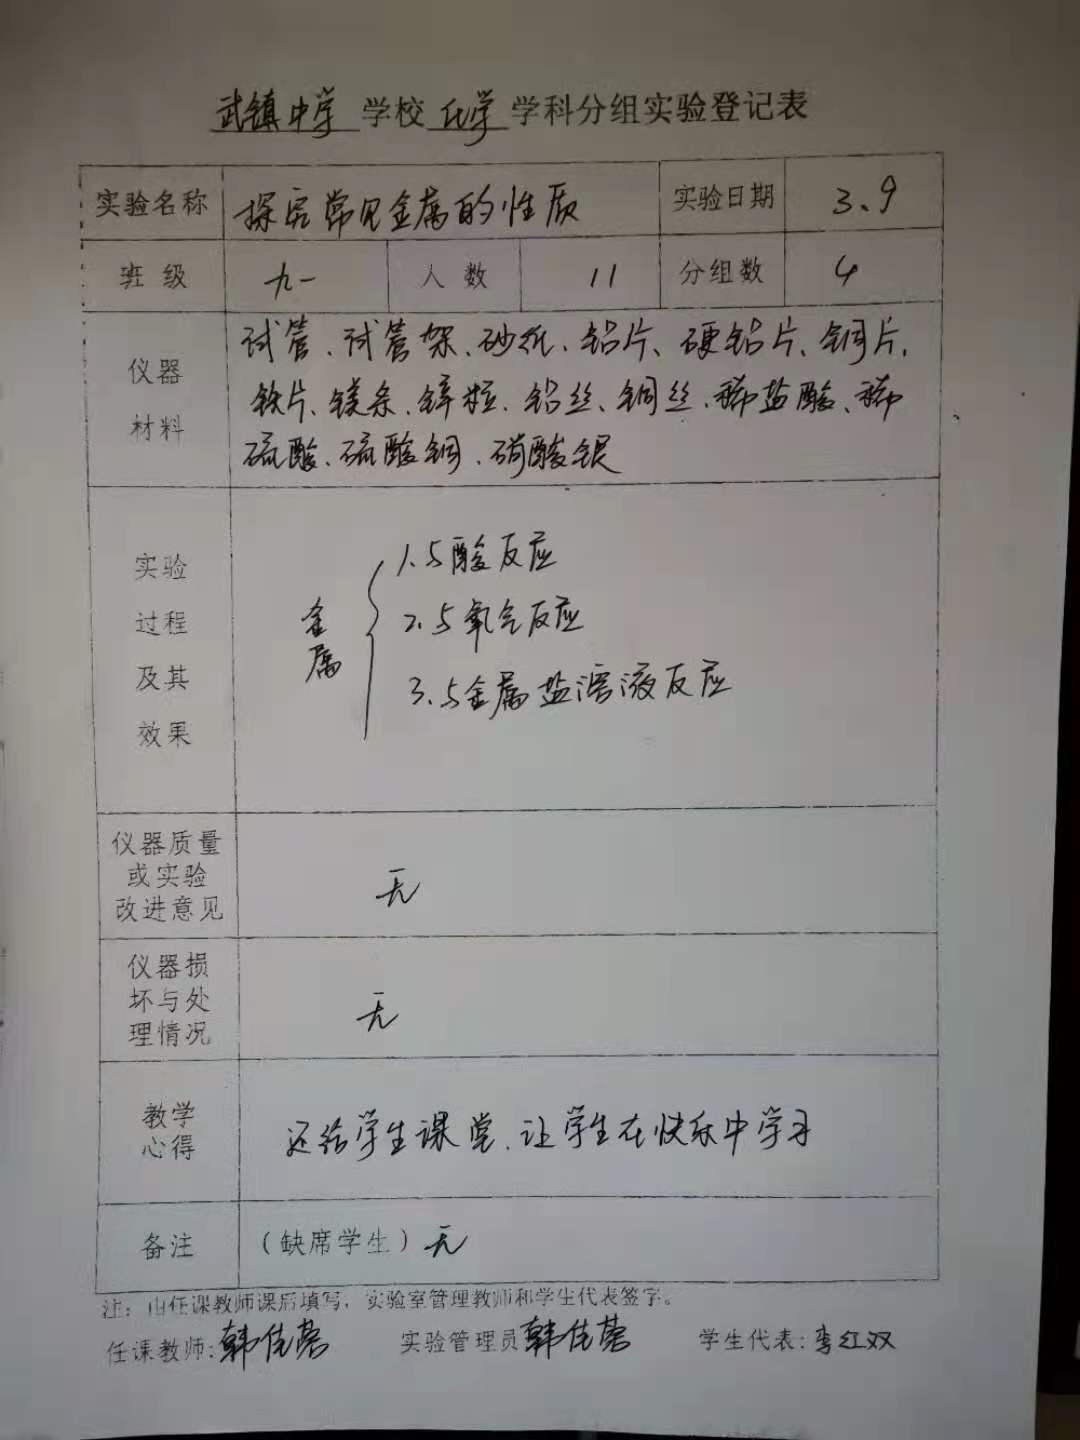 武镇中学 学校 化学 学科分组实验登记表
实验名称 探究常见金属的性质 实验日期 3、9
班 级 九一 人 数 11 分组数 4
仪器
材料
试管、试管架、砂纸、铝片、硬铝片、铜片、
铁片、镁条、锌粒、铝丝、铜丝、稀盐酸、稀
硫酸、硫酸铜、硝酸银
实验
过程
及其
效果
金属
1.与酸反应
2.与氧气反应
3.与金属盐溶液反应
仪器质量
或实验
改进意见
无
仪器损
坏与处
理情况
无
教学
心得
还给学生课堂、让学生在快乐中学习
备注 （缺席学生）无
注：由任课教师课后填写，实验室管理教师和学生代表签字。
任课教师:韩佳蓉 实验管理员 韩佳蓉 学生代表:李红双